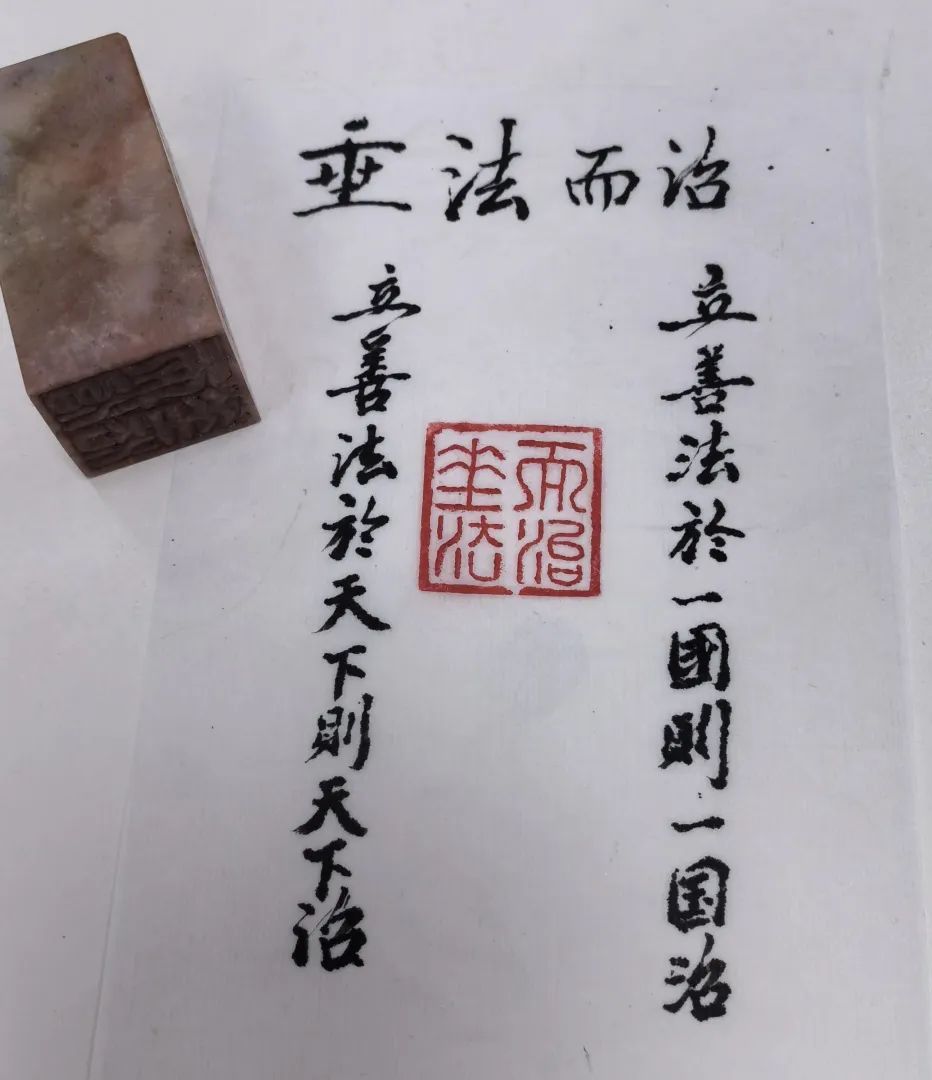 垂法而治
立善法於一國則一国治
立善法於天下則天下治
垂法
而治